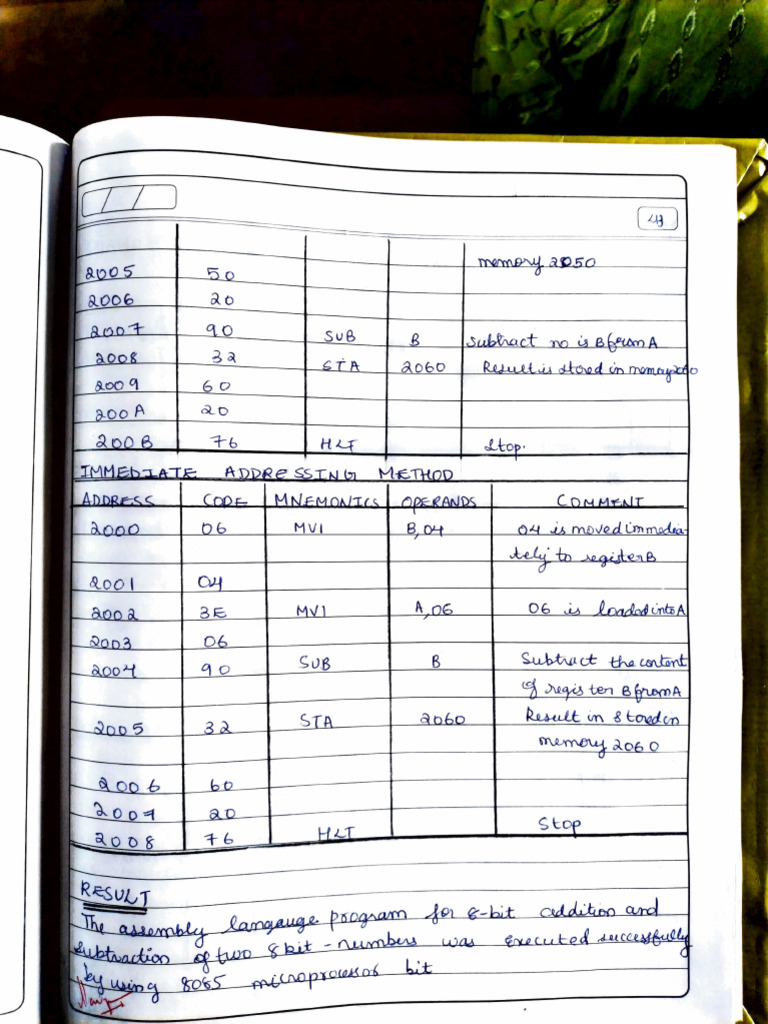 43
memory 2050
2005 50
2006 20
2007 90 SUB B Subtract no is B from A
2008 32 STA 2060 Result is stored in memory 2060
2009 60
200A 20
200B 76 HLT Stop.
IMMEDIATE ADDRESSING METHOD
ADDRESS CODE MNEMONICS OPERANDS COMMENT
2000 06 MVI B,04 04 is moved immedia-
tely to register B
2001 04
2002 3E MVI A,06 06 is loaded into A
2003 06
2004 90 SUB B Subtract the content
of register B from A
2005 32 STA 2060 Result in stored in
memory 2060
2006 60
2007 20
2008 76 HLT Stop
RESULT
The assembly langauge program for 8-bit addition and
subtraction of two 8 bit - numbers was executed successfully
by using 8085 microprocessor bit